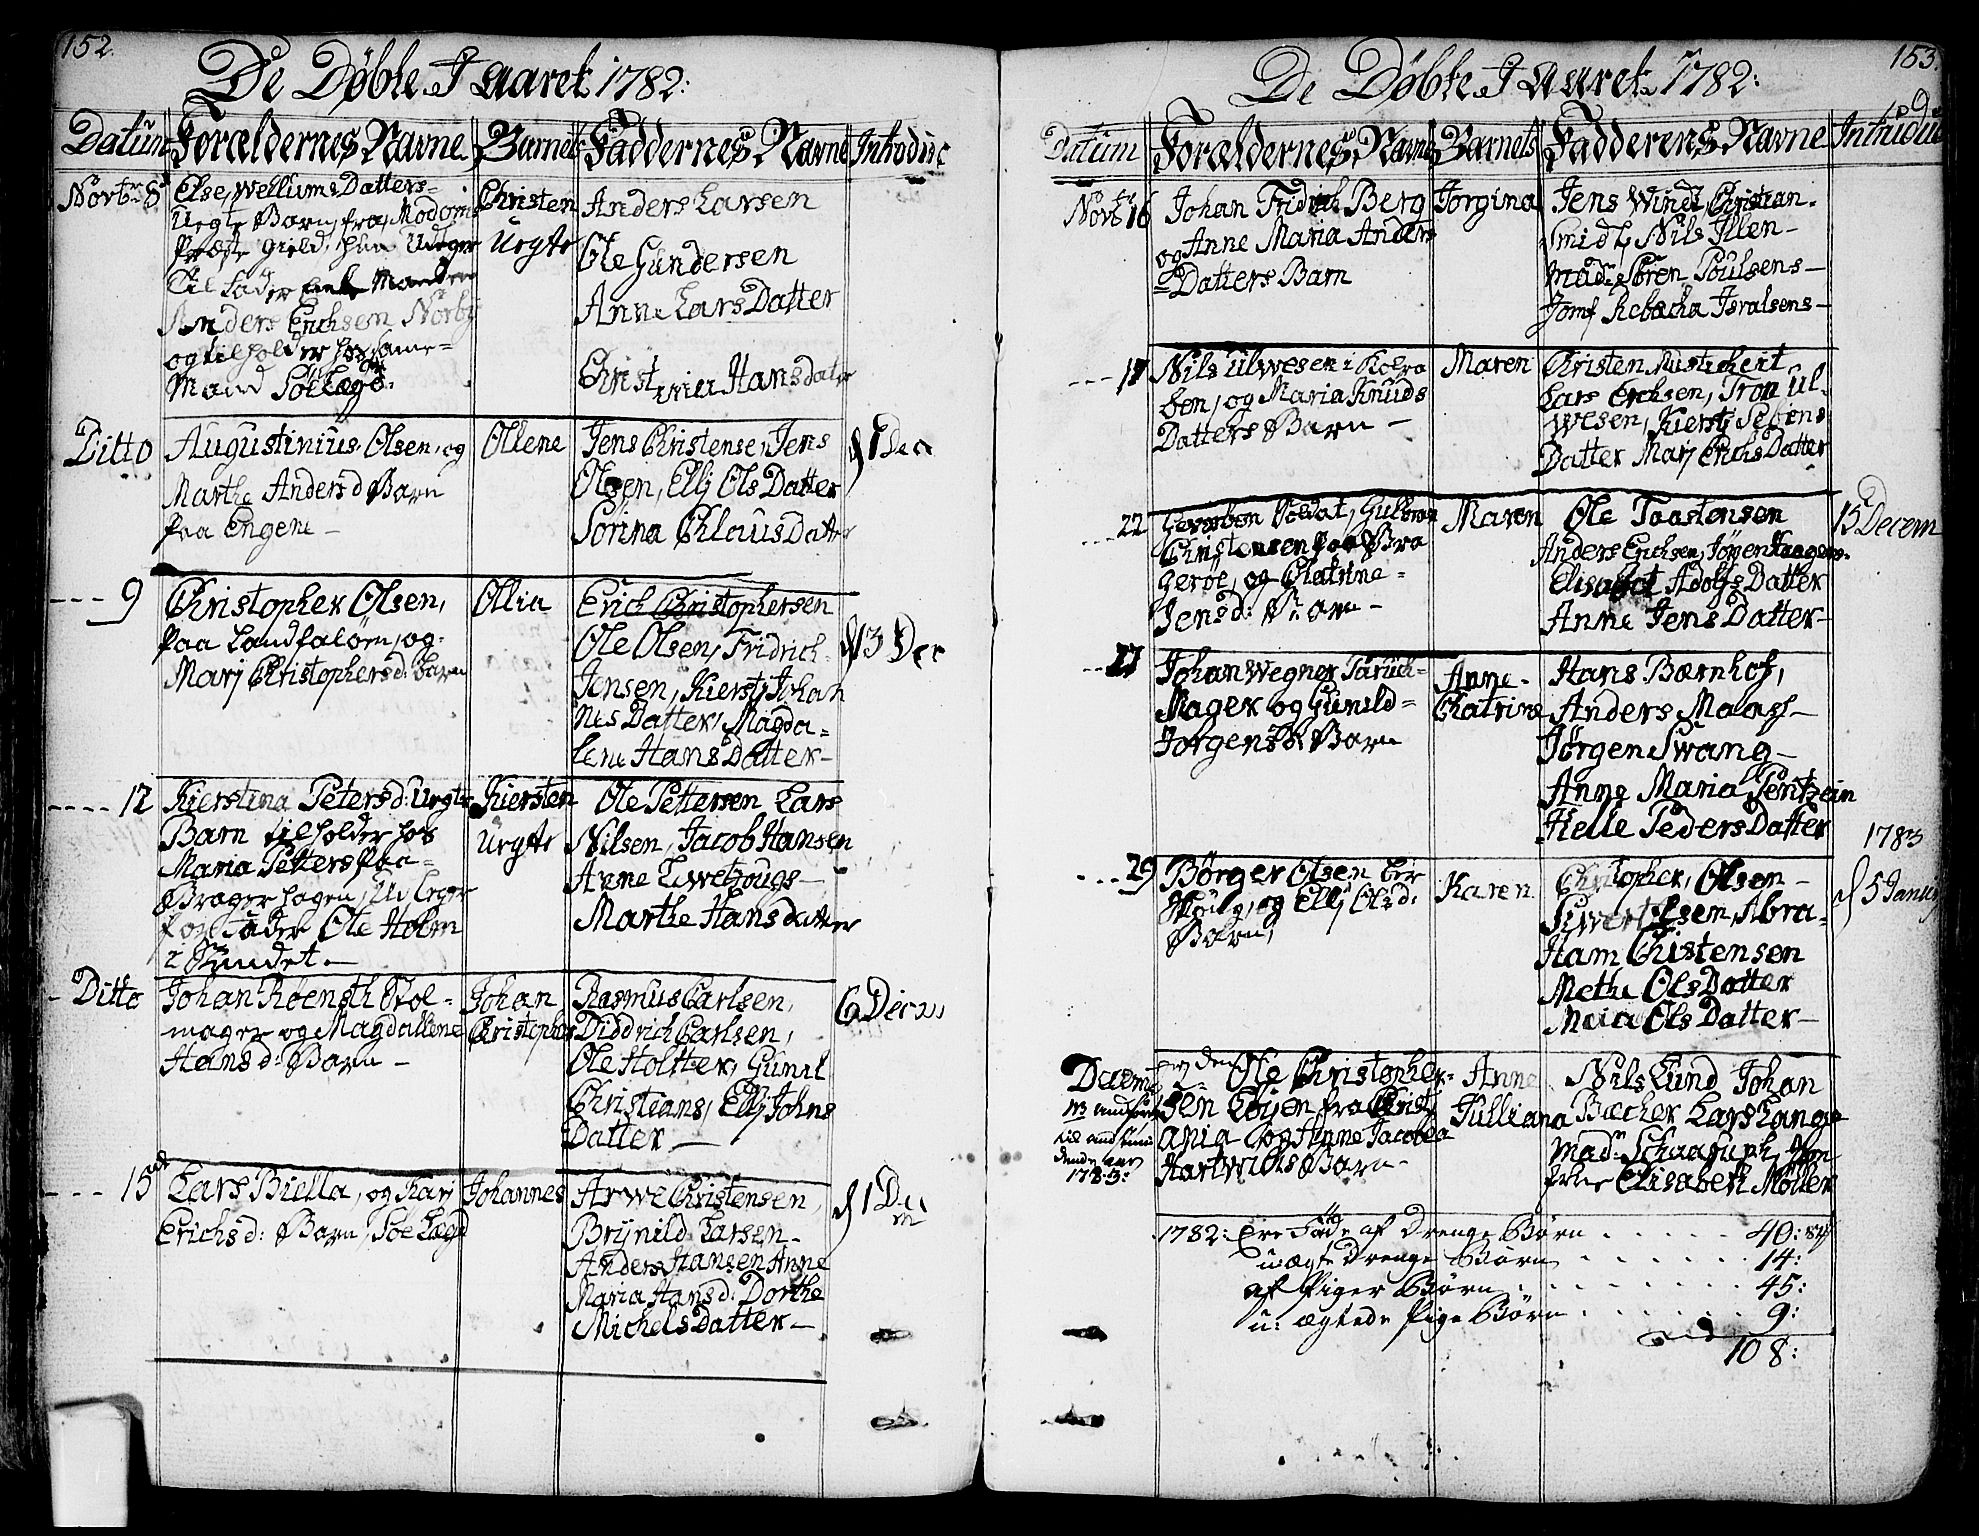 152.
De Døbte I aaret 1782:
Datum Forældernes Navne Barnets Faddernes Navne Introduc
Novbr 8
Else Wellums Datters
Uegte Barn, fra Modoms
Præste Gield, hun Udeger
Til fader enke Manden
Anders Erichsen Norby
og tilholder hos same
Mand Soelægd:
Christen
Uegte
Anders Larsen
Ole Gundersen
Anne Lars Datter
Hans dater
Ditto
Augustinius Olsen, og
Marthe Anders d Barn
paa Engene
Ollene
Jens Christense, Jens
Olsen, Elly Ols Datter
Sorina Chlaus Datter
d 1 Dec
9
Christopher Olsen,
Paa Landfaløen, og
Marj Christophers d: Barn
Ollia
Erich Christophersen
Ole Olsen, Fridrich
Jensen, Kiersty Johan
nes Datter, Magda=
lene Hans Datter
d 13 Dec
12
Kierstina Peters d: Uegte
Barn tilholder hos
Maria Petters Paa
Brager hagen, Ud Leger
for Fader Ole Holm
i Sundet.
Kiersten
Uegte
Ole Pettersen Lars
Nilsen, Jacob Hansen
Anne
Marthe Hans datter
Ditto
Johan Røensth Stol=
mager og Magdallene
Hans d: Barn
Johan
Christopher
Rasmus Carlsen,
Diddrich Carlsen,
Ole Holtter, Gunil
Christians, Elly Johns
Datter
6 Decm
15
Lars Biella, og Karj
Erichs d: Barn, Soe Lægd
Johannes
Arwe Christensen,
Brynild Larsen
Anders Hansen Anne
Maria Hans d: Dorthe
Michels Datter
d 1 Dec
153.
De Døbte I Aaret 1782:
Datum Forældernes Navne Barnets Fadderens Navne Introduc
Novbr 16
Johan Fridrich Berg
og Anne Maria Anders
Datters Barn
Jorgina
Jens Windt, Christian
Smidt, Nils Illen
Mad: Søren Poulsens
Jomf Rebacha Isralsens
17
Nils Ulwesen i Kolra
ben, og Maria Knuds
Datters Barn
Maren
Christen
Lars Erchsen, Tron Ul=
wesen, Kiersty Sebiens
Datter Marj Erichs Datter
22
Soldat, Gulbran
Christensen paa Bra
gerøe, og Chatrine
Jens d: Barn
Maren
Ole Taastensen
Anders Erichsen, Jørgen
Elisabet Adolfs Datter
Anne Jens Datter
15 Decem
27
Johan Wegner Paruch=
Mager og Gunild=
Jorgens d Barn
Anne
Chatrine
Hans Bærnhof,
Anders Maas
Jørgen Swang
Anne Maria Pentzein
Helle Peders Datter
29
Børger Olsen
og Elly Ols d:
Barn,
Karen
Christopher, Olsen
Siwert Olsen, Abra=
Ham Christensen
Methe Ols Datter
Maia Ols Datter
1783
d 5 Janu
Decem
1783:
Ole Christopher=
sen Løyen fra Christ
ania og Anne Jacobea
Hartwichs Barn
Anne
Julliana
Nils Lund Johan
Bæcher Lars Lange
Mad: Schaarup, Jom
frue Elisabeth Møller
1782: Ere Føde af Drenge Børn . . . . . 40:
uægte Drenge Børn . . . . . 14:
af Piger Børn . . . . . 45:
u: ægtede Pige Børn . . . . . 9:
108: